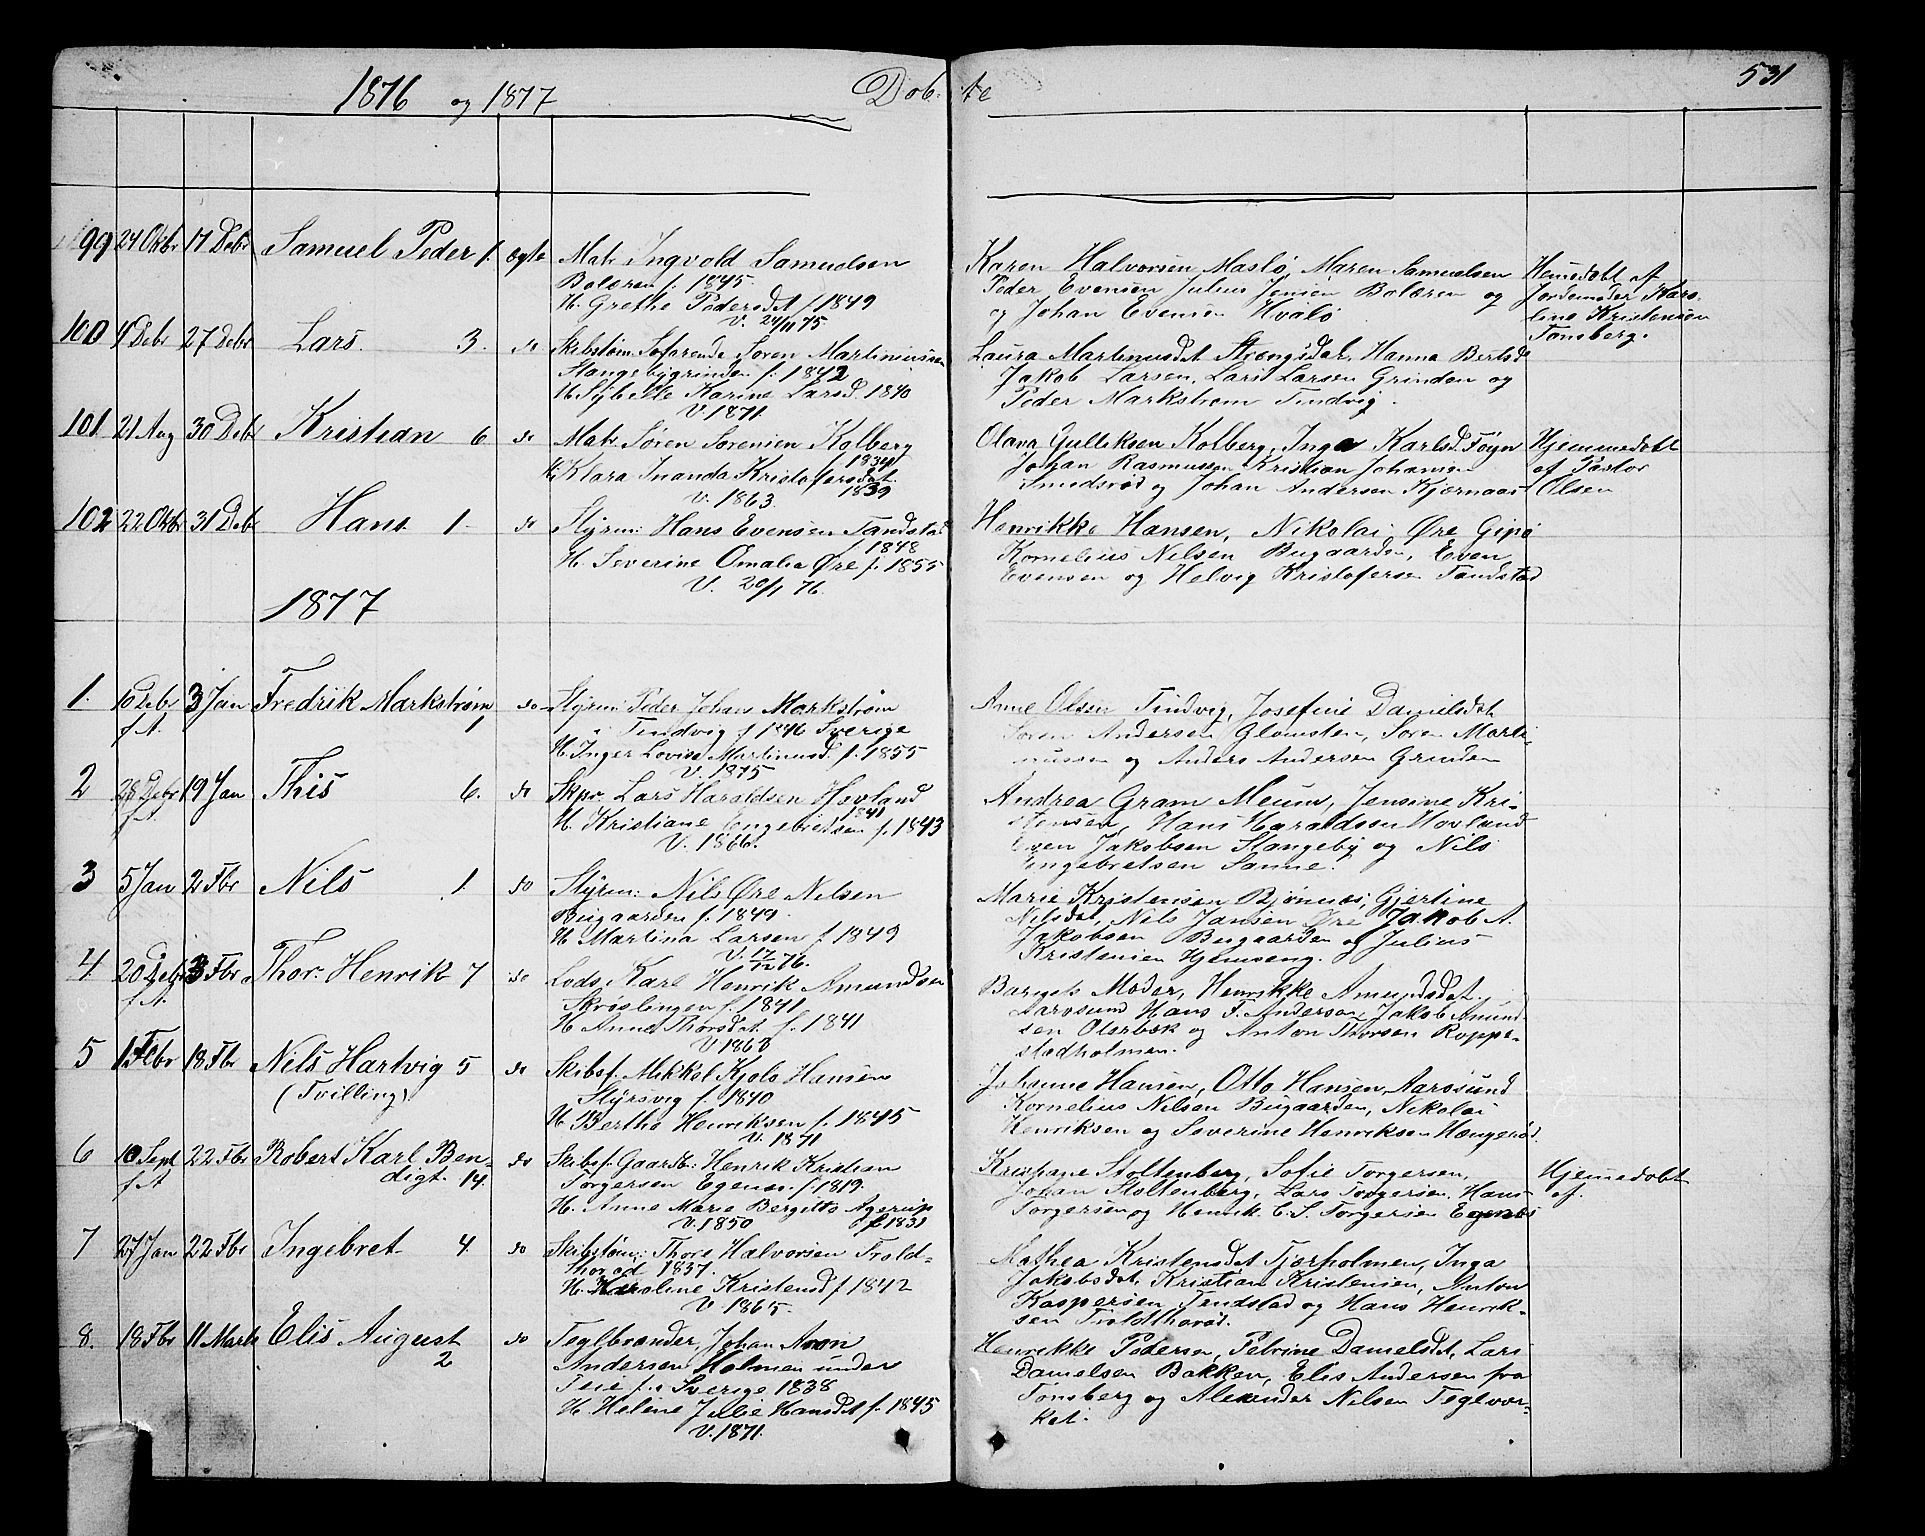 1876 og 1877
Dobte
531
99 24 Oktbr 17 Debr Samuel Peder 1. ægte Matr Ingvold Samuelsen
Bolæren f. 1845.
H. Grethe Pedersdat f. 1849
V. 24/11 75.
Karen Halvorsen Maslø, Maren Samuelsen
Peder Evensen Julius Jensen Bolæren og
og Johan Evensen Hvalø
Hemedobt af
Jordemoder Karo-
line Kristensen
Tønsberg.
100 4 Debr 27 Debr Lars. 3. do Skibstøm. Søfarende Søren Martinusen
Slangebygrinden f. 1842
H. Sybille Karine Larsd. 1840
V. 1871.
Laura Martinusdat Strængsdal, Hanna Bertsd
Jakob Larsen, Lars Larsen Grinden og
Peder Markstrøm Tindvig.
101 21 Aug 30 Debr Kristian 6 do Matr Søren Sørensen Kolberg
f. 1834
H. Klara Inanda Kristofersdat.
V. 1863. 1839
Olava Gulliksen Kolberg, Inga Karlsd. Føyn
Johan Rasmussen Kristian Johansen
Smidsrød og Johan Andersen Kjærnaas
Hjemmedobt
af Pastor
Olsen
102 22 Oktbr 31 Debr Hans 1. do Styrm: Hans Evensen Tandstad
f. 1848
H. Severine Omalia Øre f. 1855
V. 20/1 76.
Henrikke Hansen, Nikolai Øre Gipø
Kornelius Nilsen Bugaarden, Even
Evensen og Helvig Kristofersen Tandstad
1877
1. 10 Debr 3 Jan Fredrik Markstrøm do Styrm: Peder Johan Markstrøm
f. A. 1 Tindvig f. 1846 Sverige
H. Inger Lovise Martinusd. f. 1855
V. 1875
Anne Olsen Tindvig, Josefine Danielsdat
Søren Andersen Glomsten, Søren Marti-
nussen og Anders Andersen Grinden
2 28 Debr 19 Jan This 6. do Skpr. Lars Haraldsen Hovland
f. A. 1841
H. Kristiane Engebretsen f. 1843
V. 1866.
Andrea Gram Meum, Jensine Kri-
stensen, Hans Haraldssen Hovland
Even Jakobsen Slangeby og Nils
Engebretsen Sanne.
3 5 Jan 2 Fbr Nils 1. do Styrm: Nils Øre Nilsen
Bugaarden f. 1849.
H. Martina Larsen f. 1849
V. 17/12 76.
Marie Kristensen Bjønnes, Gjertine
Nilsdat, Nils Jansen Øre Jakob A.
Jakobsen Bugaarden og Julius
Kristensen Hjemseng.
4 20 Debr 3 Fbr Thor Henrik 7 do Lods Karl Henrik Amundsen
f. A. Skrøslingen f. 1841
H. Anne Thorsdat f. 1841
V. 1868
Barnets Moder, Henrikke Amundsdat.
Aarøsund Hans F. Andersen, Jakob Amund-
sen Oterbæk og Anton Thorsen Roppe-
stadholmen.
5 1 Febr 18 Fbr Nils Hartvig 5 do Skibsf. Mikkel Kjølø Hansen
(Tvilling) Styrsvig f. 1840
H. Berthe Henriksen f. 1845
V. 1871
Johanne Hansen, Otto Hansen, Aarøsund
Kornelius Nilsen Bugaarden, Nikolai
Henriksen og Severine Henriksen Haugerød.
6 10 Sept 22 Fbr Robert Karl Ben- do Skibsf. Gaardbr: Henrik Kristian
f. A digt. 14. Torgersen Egenes. f. 1819.
H. Anne Marie Bergitte Agerup
V. 1850 f. 1831
Kristiane Stoltenberg, Sofie Torgersen,
Johan Stoltenberg, Lars Torgersen, Hans
Torgersen og Henrik C. S. Torgersen Egenes
Hjemedobt
af.
7 27 Jan 22 Fbr Ingebret 4. do Skibstøm: Thore Halvorsen Trold-
thorød 1837.
H. Karoline Kristensd f. 1842
V. 1865.
Mathea Kristensdat Fjærholmen, Inga
Jakobsdat, Kristian Kristensen, Anton
Kaspersen Tandstad og Hans Henrik-
sen Troldthorød.
8. 18 Fbr 11 Marts Elis August do Teglbrænder, Johan Aron
2 Andersen Holmen under
Teie f. i Sverige 1838
H. Helene Julie Hansdat f. 1845
V. 1871.
Henrikke Pedersen, Petrine Danielsdt, Lars
Danielsen Bakken, Elis Andersen fra
Tønsberg og Alexander Nilsen Teglvær-
ket.